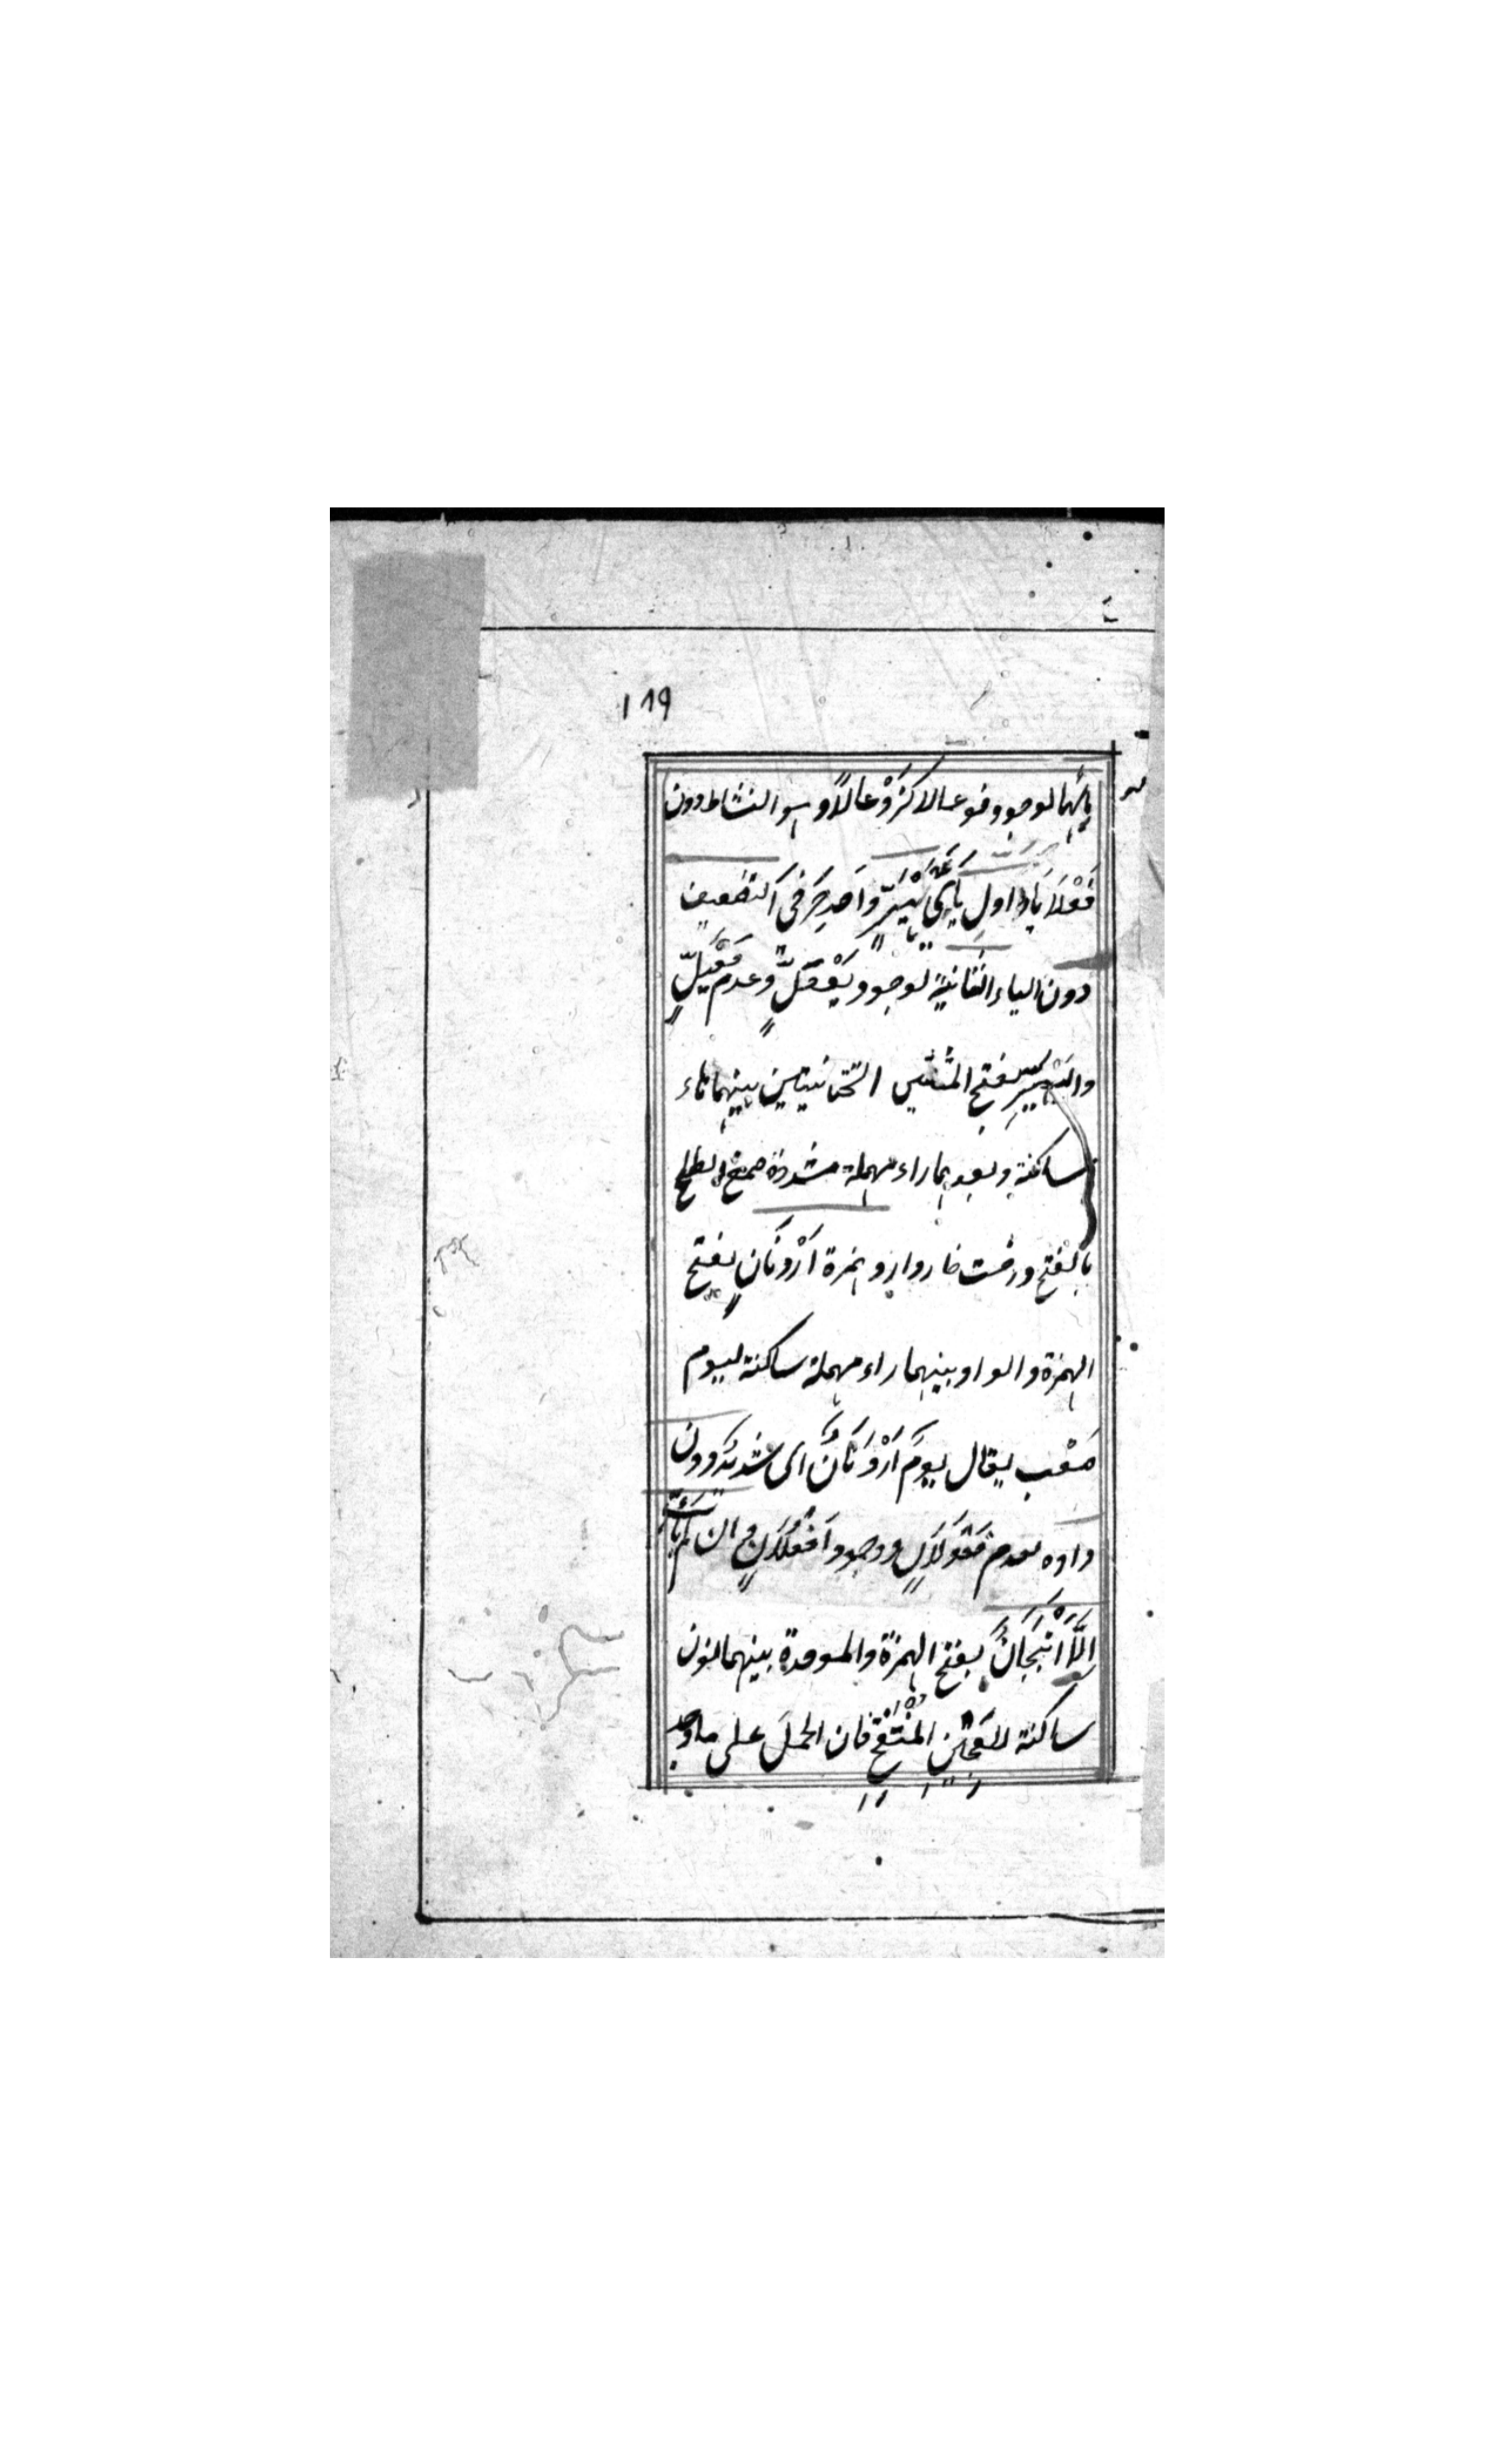 ١٨٩
يائهما لوجود فوعالا كزَوْعالًا وهو النشاط دون
فَعْلَايَا واول يائى يَهْيَرٍّ واحد حرفى التضعيف
دون الياء الثانية لوجود يَفْعَلٍّ وعدم فَعْيَلٍّ
واليهير بفتح المثناتين التحتانيتين بينهما هاء
ساكنة وبعدهما راء مهملة مشددة صمغ الطلح
بالفتح درخت خاردار وهمزة اَرْوَنَانٍ بفتح
الهمزة والواو بينهما راء مهملة ساكنة ليوم
صَعْب يقال يومٌ اَرْوَنَانٌ اى شديد دون
واوه لعدم فَعْوَلَانٍ ووجود اَفْعَلَانٍ وان لم يأت
اِلَّا اَنْبَجَانٌ بفتح الهمزة والموحدة بينهما نون
ساكنة للعجين المُنْتَفِخ فان الحمل على ما وجد